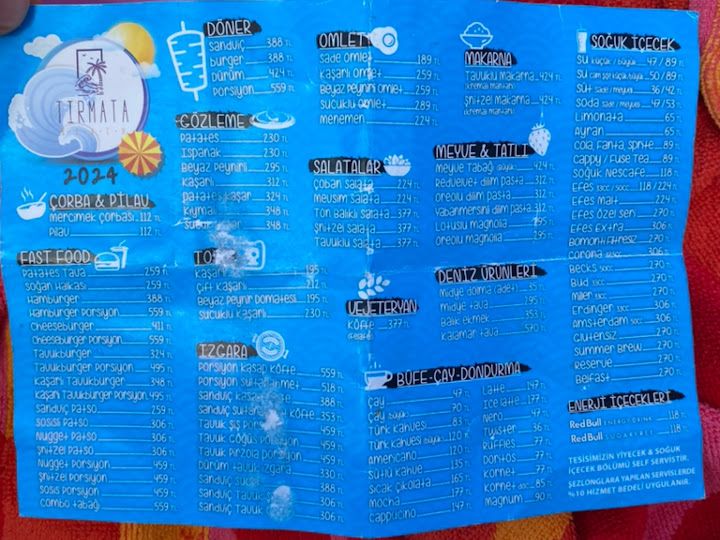 TIRMATA
BEACH
2024
ÇORBA & PİLAV
Mercimek Çorbası 112 TL
Pilav 112 TL
FAST FOOD
Patates Tava 259 TL
Soğan Halkası 259 TL
Hamburger 388 TL
Hamburger Porsiyon 559 TL
Cheeseburger 411 TL
Cheeseburger Porsiyon 559 TL
Tavukburger 324 TL
Tavukburger Porsiyon 495 TL
Kaşarlı Tavukburger 348 TL
Kaşarlı Tavukburger Porsiyon 495 TL
Sandviç Patso 259 TL
Sosisli Patso 306 TL
Nugget Patso 306 TL
Şnitzel Patso 306 TL
Nugget Porsiyon 459 TL
Şnitzel Porsiyon 459 TL
Sosis Porsiyon 459 TL
Combo Tabağı 559 TL
DÖNER
Sandviç 388 TL
Burger 388 TL
Dürüm 424 TL
Porsiyon 559 TL
GÖZLEME
Patates 230 TL
Ispanak 230 TL
Beyaz Peynirli 295 TL
Kaşarlı 312 TL
Patates Kaşar 324 TL
Kıymalı 348 TL
348 TL
Kaşarlı 195 TL
Çift Kaşarlı 212 TL
Beyaz Peynir Domatesli 195 TL
Sucuklu Kaşarlı 230 TL
IZGARA
Porsiyon Kasap Köfte 559 TL
Porsiyon Sultan Köfte 518 TL
Sandviç Kasap Köfte 388 TL
Sandviç Sultan Köfte 353 TL
Tavuk Şiş Porsiyon 459 TL
Tavuk Göğüs Porsiyon 459 TL
Tavuk Pirzola Porsiyon 459 TL
Dürüm Tavuk Izgara 330 TL
Sandviç Tavuk 306 TL
Sandviç Tavuk 306 TL
Sandviç Tavuk 306 TL
OMLET
Sade Omlet 189 TL
Kaşarlı Omlet 259 TL
Beyaz Peynirli Omlet 259 TL
Sucuklu Omlet 289 TL
Menemen 224 TL
SALATALAR
Çoban Salata 224 TL
Mevsim Salata 224 TL
Ton Balıklı Salata 377 TL
Şnitzel Salata 377 TL
Tavuklu Salata 377 TL
VEJETERYAN
Köfte 377 TL
(Falafel)
MAKARNA
Tavuklu Makarna 424 TL
(Kremalı Mantarlı)
Şnitzel Makarna 424 TL
(Kremalı Mantarlı)
MEYVE & TATLI
Meyve Tabağı Büyük 424 TL
Redvelvet Dilim Pasta 312 TL
Oreolu Dilim Pasta 312 TL
Yabanmersini Dilim Pasta 312 TL
Lotuslu Magnolia 195 TL
Oreolu Magnolia 195 TL
DENİZ ÜRÜNLERİ
Midye Dolma (Adet) 35 TL
Midye Tava 295 TL
Balık Ekmek 353 TL
Kalamar Tava 570 TL
BÜFE-ÇAY-DONDURMA
Çay 47 TL
Çay Büyük 70 TL
Türk Kahvesi 83 TL
Türk Kahvesi Büyük 120 TL
Americano 120 TL
Sütlü Kahve 135 TL
Sıcak Çikolata 165 TL
Mocha 177 TL
Cappucino 147 TL
Latte 147 TL
Ice Latte 177 TL
Nero 47 TL
Twister 36 TL
Ruffles 77 TL
Doritos 77 TL
Kornet 77 TL
Kornet Disc 85 TL
Magnum 90 TL
SOĞUK İÇECEK
Su Küçük / Büyük 47 / 89 TL
Su Cam Şişe Küçük Büyük 50 / 89 TL
Süt Sade / Meyveli 36 / 42 TL
Soda Sade / Meyveli 47 / 53 TL
Limonata 65 TL
Ayran 65 TL
Cola, Fanta, Sprite 89 TL
Cappy / Fuse Tea 89 TL
Soğuk Nescafe 118 TL
Efes 33CC / 50CC 118 / 224 TL
Efes Malt 224 TL
Efes Özel Seri 270 TL
Efes Extra 306 TL
Bomonti Filtresiz 270 TL
Corona 306 TL
Becks 50CC 270 TL
Bud 33CC 270 TL
Miller 33CC 270 TL
Erdinger 33CC 306 TL
Amsterdam 50CC 306 TL
Glutensiz 270 TL
Summer Brew 270 TL
Reserve 270 TL
Belfast 270 TL
ENERJİ İÇECEKLERİ
Red Bull ENERGY DRINK 118 TL
Red Bull SUGARFREE 118 TL
TESİSİMİZİN YİYECEK & SOĞUK
İÇECEK BÖLÜMÜ SELF SERVİSTİR.
ŞEZLONGLARA YAPILAN SERVİSLERDE
%10 HİZMET BEDELİ UYGULANIR.